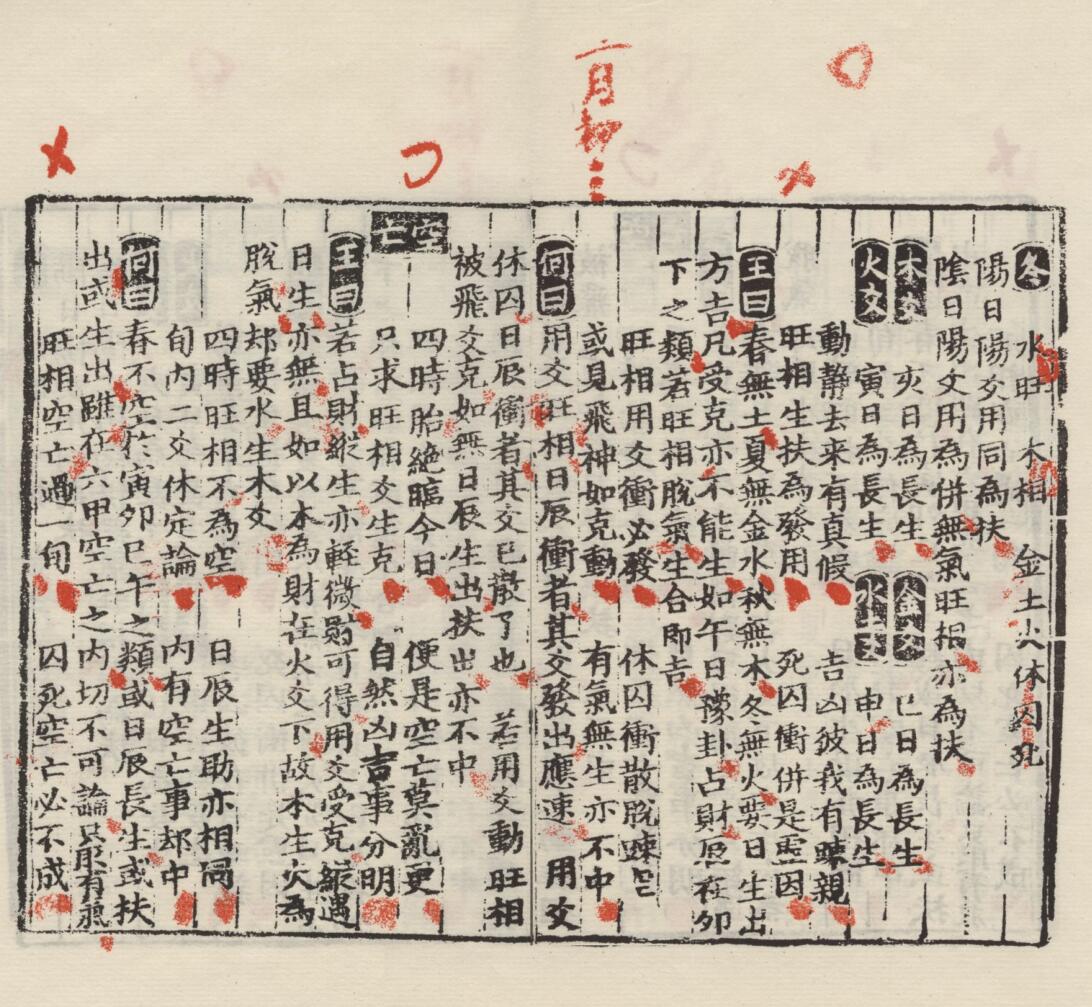 二月初三
冬 水旺 木相 金土火休囚死
陽日陽爻用同為扶
陰日陽爻用為併無氣旺相亦為扶
木爻 亥日為長生 金爻 巳日為長生
火爻 寅日為長生 水土爻 申日為長生
動靜去来有真假 吉凶彼我有踈親
旺相生扶為發用 死囚衝併是
王曰 春無土夏無金水秋無木冬無火要日生出
方吉凡受克亦不能生如午日豫卦占財爻在卯
下之類若旺相脫氣生合即吉
旺相用爻衝必發 休囚衝散脫踈
或見飛神如克動 有氣無生亦不中
何曰 用爻旺相日辰衝者其爻發出應速 用爻
休囚日辰衝者其爻已散了也 若用爻動旺相
被飛爻克如無日辰生出扶出亦不中
空亡
四時胎絶臨今日 便是空亡莫亂更
只求旺相爻生克 自然凶吉事分明
王曰 若占財縱生亦輕微財可得用爻受克縱遇
日生亦無且如以木為財在火爻下故木生火為
脫氣却要水生木爻
四時旺相不為空 日辰生助亦相同
旬内二爻休定論 内有空亡事却中
何曰 春不空於寅卯巳午之類或日辰長生或扶
出或生出雖在六甲空亡之内切不可論只取有氣
旺相空亡過一旬 囚死空亡必不成